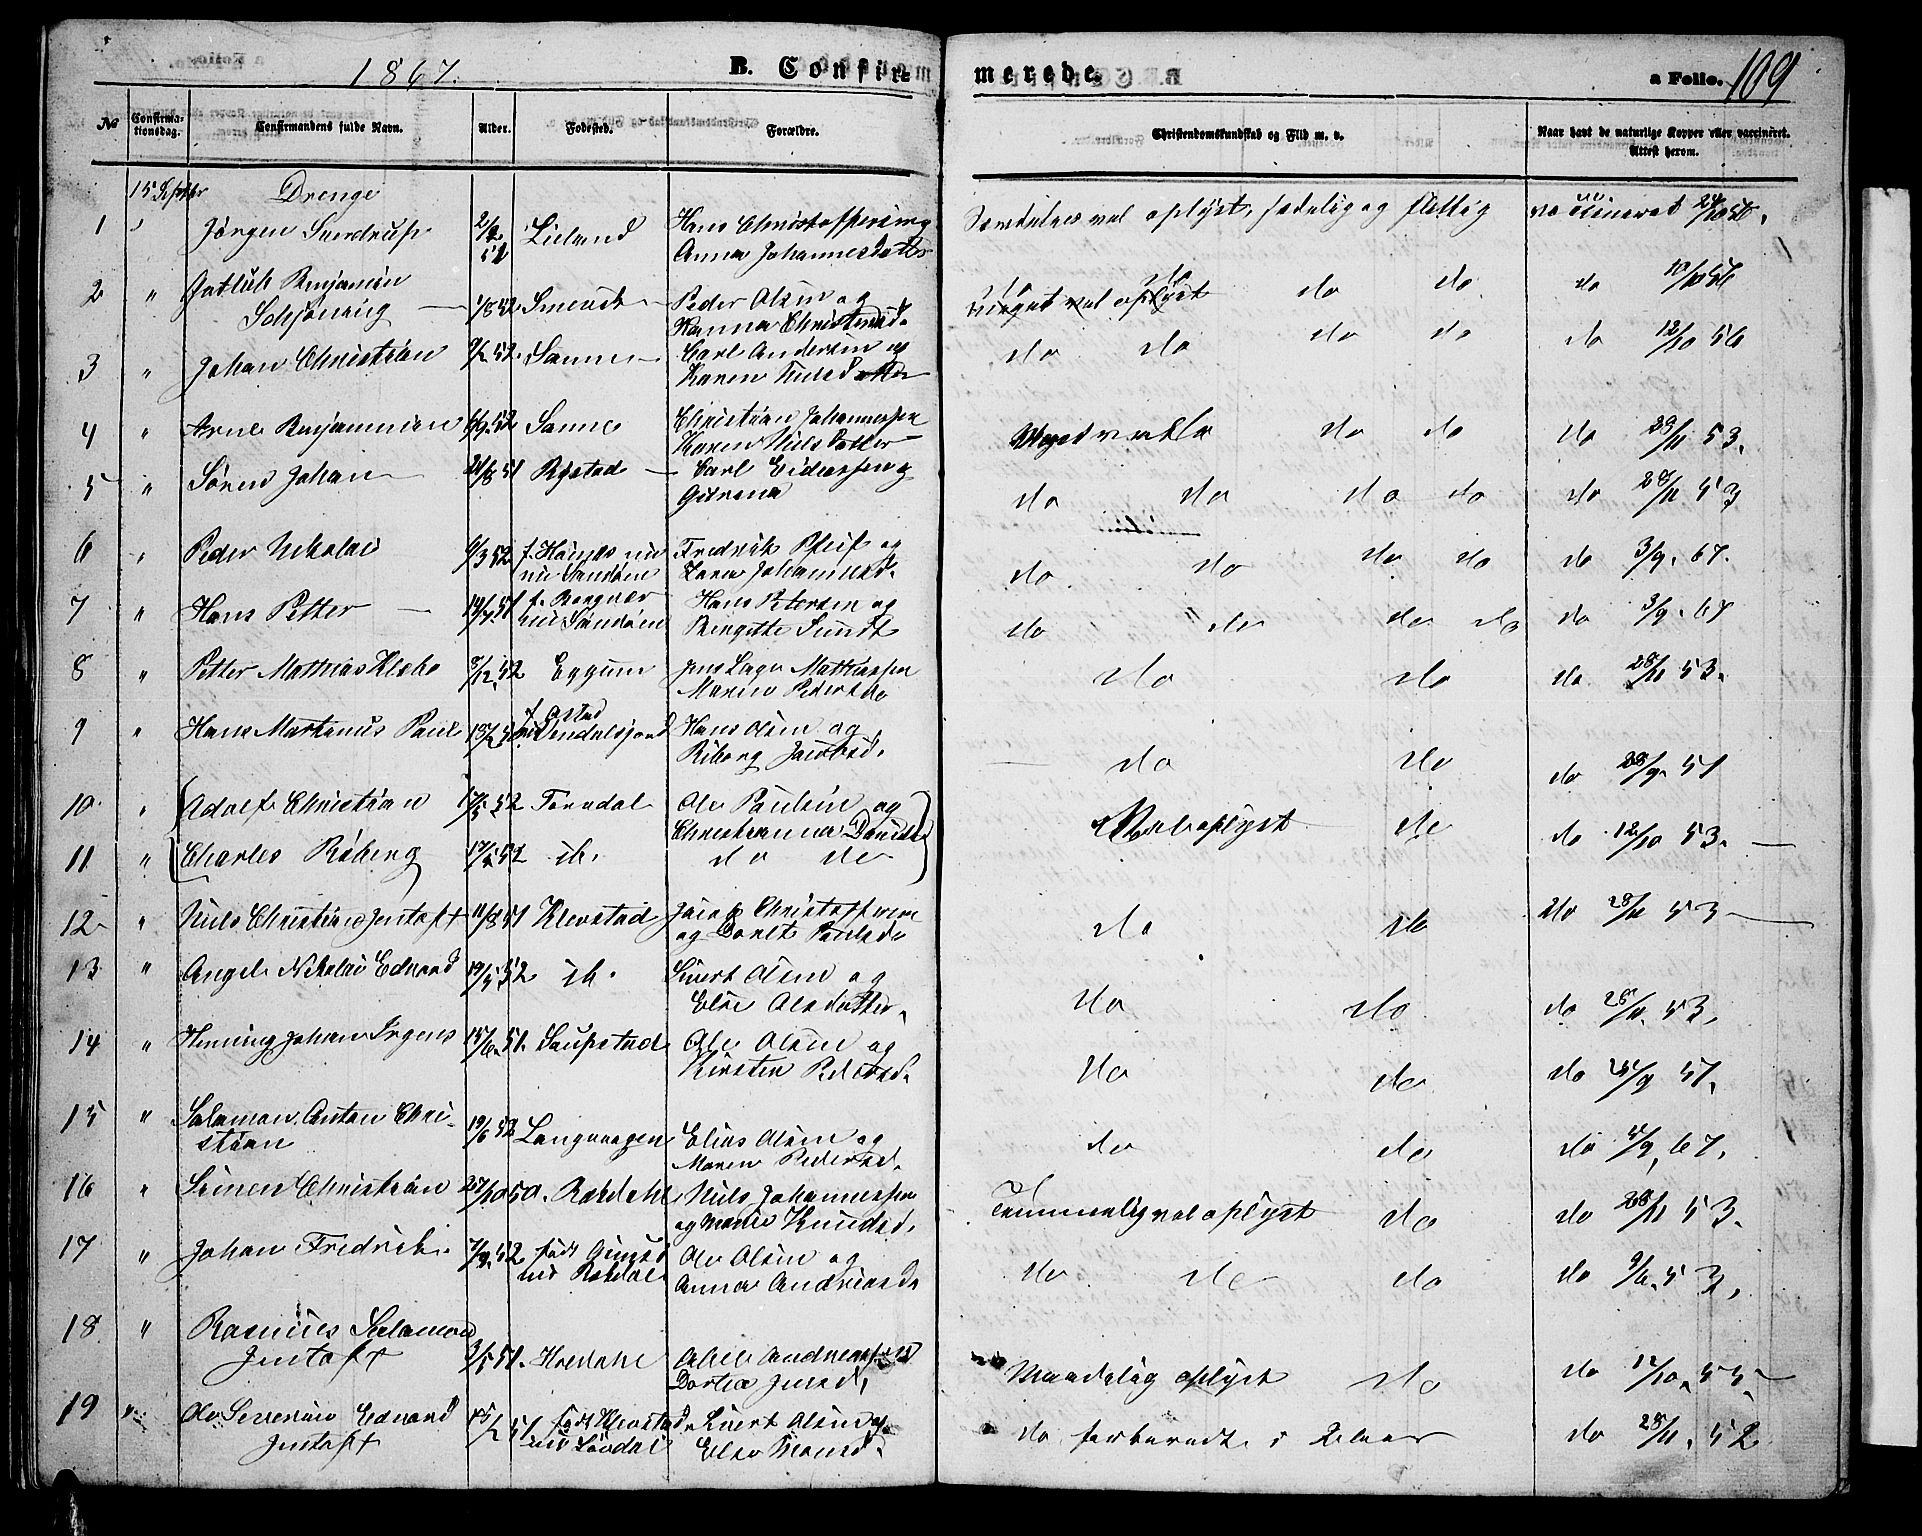 1867.
B. Confir-
merede.
a Folio. 109
No
Confirma-
tionsdag.
Confirmandens fulde Navn.
Alder.
Fødested.
Forældre.
Christendomskundskab og Flid m. v.
Naar havt de naturlige Kopper eller vaccineret.
Attest herom.
15 Septbr Drenge
1 " Jørgen Sundrup 2/2 52 Lieland Hans Christoffersen og
Anna Johannesdatter
vel oplyst, sædelig og flittig 24/10 56.
2 " Gotlieb Benjamin
Schjøning 1/8 52 Smorten Peder Olsen og
Hanna Christensd.
meget vel oplyst do do do 10/10 56
3 " Johan Christian 9/2 52. Sanne Carl Andersen og
Karen Nielsdatter
do do do do do 12/10 56
4 " Arne Benjaminsen 6/9 52 Sanne Christian Johannessen
Karen Nielsdatter
Meget vel do do do 29/11 53.
5 " Søren Johan 21/8 51 Røstad Carl Eideassen og
do do do do do 28/11 53
6 " Peder Nikolai 6/3 52 f. Hognæs
nu Sandøen Fredrik Pleif og
Lava Johannesd.
do do do do do 3/9. 67.
7 " Hans Petter 14/7. 51 f. Borgvær
nu Sandøen Hans Petersen og
Bergitte Sundt
do do do do do 3/9. 67
8 " Petter Mathias Klebo 8/12. 52 Eggum Jens Lage Mathiassen
Maren Pedersd
do do do 28/11 53.
9 " Hans Martinus Paul f. Astad
Hans Olsen og
Riborg Jacobsd.
do do do 28/9. 51
10 " Adolf Christian 17/5 52 Torvdal Ole Paulsen og
Christianna Danielsd
Vel oplyst do do 12/10 53.
11 " Charles Riberg 17/5 52 ib. do do
12 " Niels Christian Jentoft 11/8 51 Klevstad Jacob Christoffersen
og Doret Paulsd
do do do 28/11 53
13 " Angel Nikolai Edvard 19/5. 52 ib. Sivert Olsen og
Else Olsdatter.
do do do 28/11. 53.
14 " Henning Johan Irgens 15/6. 51. Saupstad Ole Olsen og
Kirsten Pedersd.
do do do 24/9 51.
15 " Salamon Anton Chri-
stian 19/6 52 Langvaagen Elias Olsen og
Maren Pedersd.
do do do 4/9, 67.
16 " Simen Christian 27/10 50. Rørdahl Niels Johannessen
og Marie Knudsd.
Temmelig vel oplyst do do 28/11 53.
17 " Johan Fredrik 7/9. 52 født Gimsø
nu Rørdal Ole Olsen og
Anna Andreasd.
do do do do 9/6. 53.
18 " Rasmus Salamon
Jentoft 3/5 51. Hordahl Abel Andreassen
Dortea Jensd.
Maadelig oplyst do do 12/10. 55.
19 " Ole Severin Edvard
Jentoft 13/2 51 født Klevstad
nu Lavdal Sivert Olsen og
Else Monsd.
do forberedt i 2 Aar do 28/11. 52